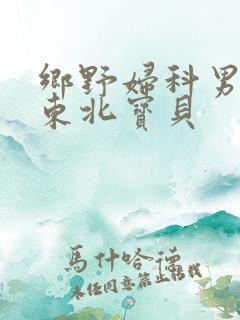 鄉野婦科男
東北寶貝
馬什哈德
未任同意禁止轉載